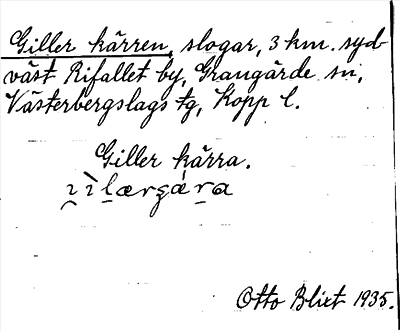 Giller kärren, slogar, 3 km. syd
väst Rifallet by, Grangärde sn,
Västerbergslags tg, Kopp l.
Giller kärra.
Otto Blixt 1935.